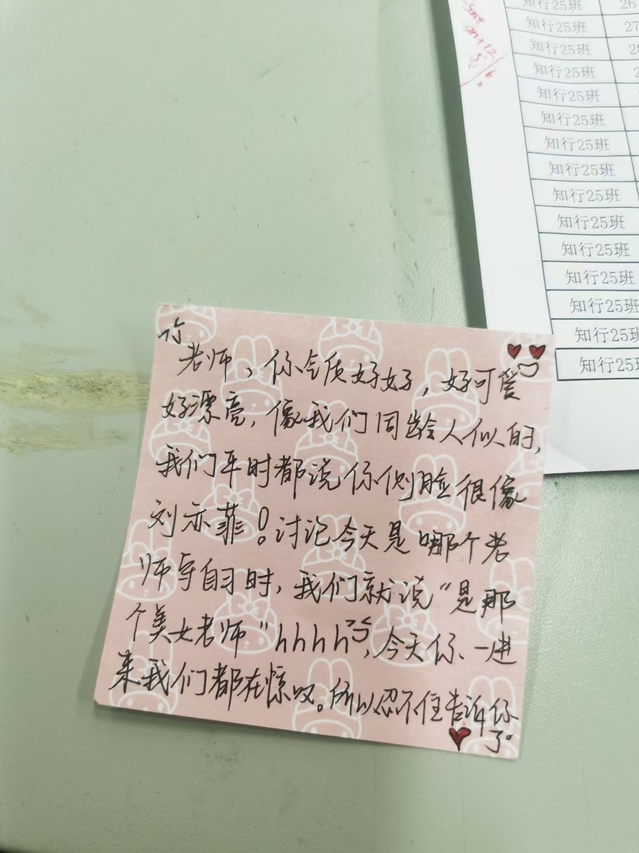 知行25班 26
知行25班 27
知行25班
知行25班
知行25班
知行25班
知行25班
知行25班
知行25班
知行25班
知行25班
知行25班
知行25班
知行25班
知行25班
老师、你气质好好，好可爱
好漂亮，像我们同龄人似的，
我们平时都说你侧脸很像
刘亦菲！讨论今天是哪个老
师守自习时，我们就说“是那
个美女老师”hhhh，今天你一进
来我们都在惊叹。所以忍不住告诉你
了。